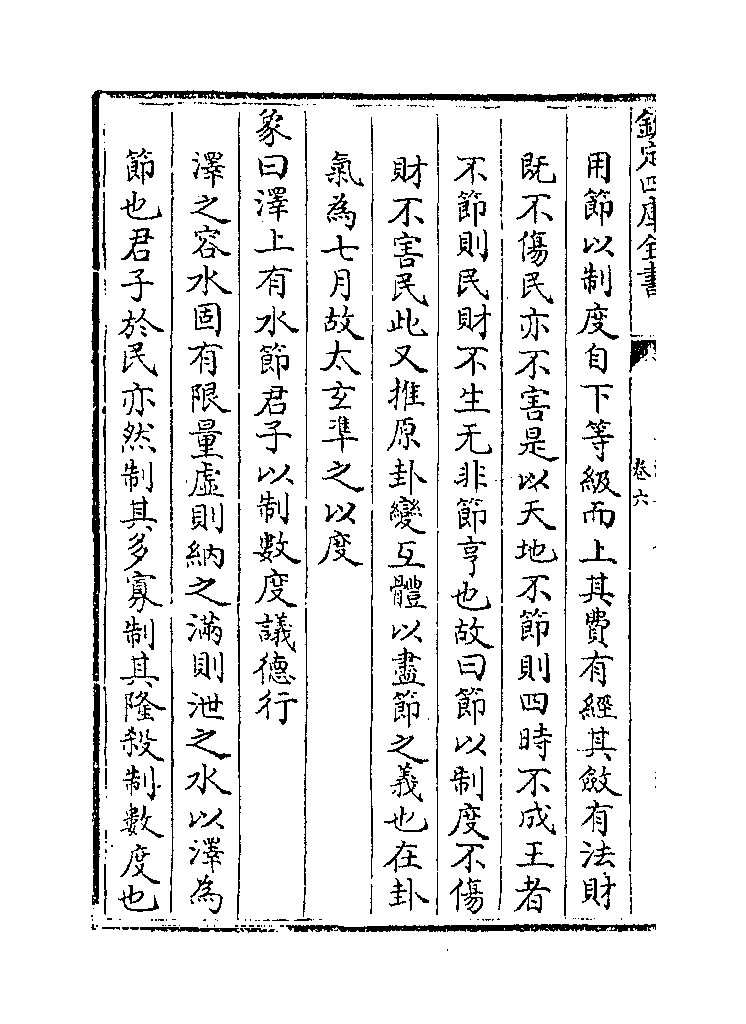 欽定四庫全書
卷六
用節以制度自下等級而上其費有經其斂有法財
既不傷民亦不害是以天地不節則四時不成王者
不節則民財不生无非節亨也故曰節以制度不傷
財不害民此又推原卦變互體以盡節之義也在卦
氣為七月故太玄準之以度
象曰澤上有水節君子以制數度議德行
澤之容水固有限量虛則納之滿則泄之水以澤為
節也君子於民亦然制其多寡制其隆殺制數度也